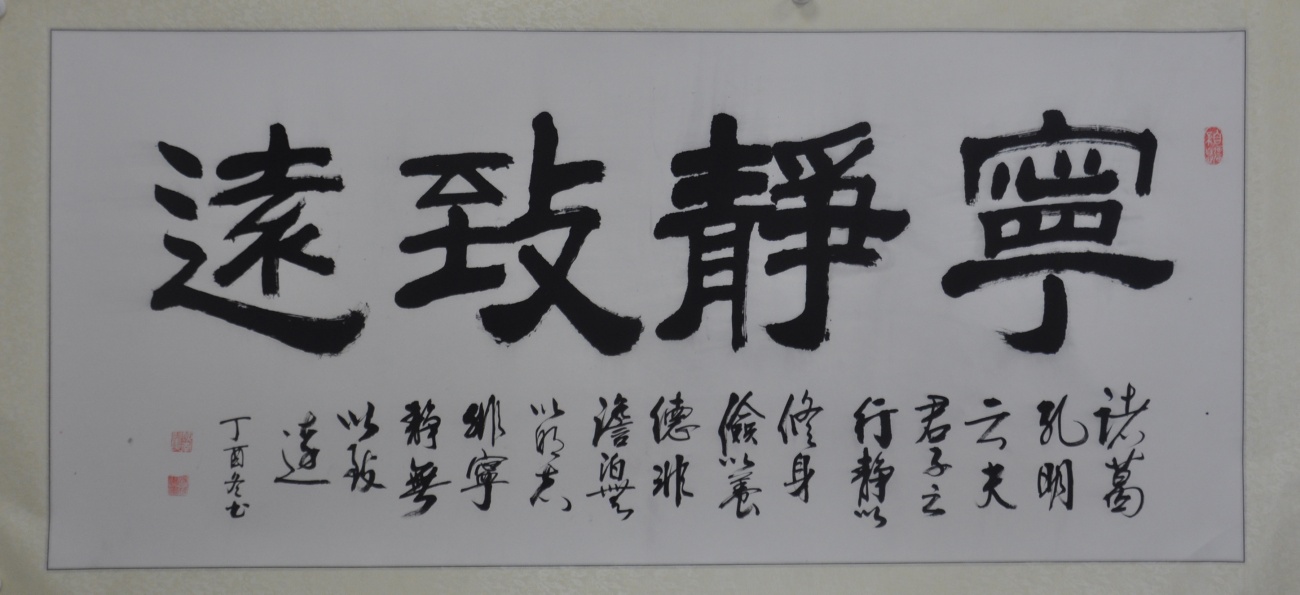 寧靜致遠
諸葛
孔明
云夫
君子之
行靜以
修身
儉以養
德非
澹泊無
以明志
非寧
靜無
以致
遠
丁酉冬书